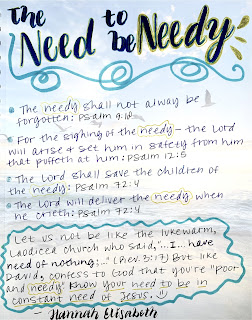 The Need to be Needy
The needy shall not alway be
forgotten: Psalm 9:18
For the sighing of the needy - the Lord
will arise & set him in safety from him
that puffeth at him: Psalm 12:5
The Lord shall save the children of
the needy: Psalm 72:4
The Lord will deliver the needy when
he crieth: Psalm 72:4
Let us not be like the lukewarm,
Laodicea church who said, "...I... have
need of nothing;..." (Rev. 3:17) But like
David, confess to God that you're "poor
and needy" Know your need to be in
constant need of Jesus. :)
- Hannah Elisabeth